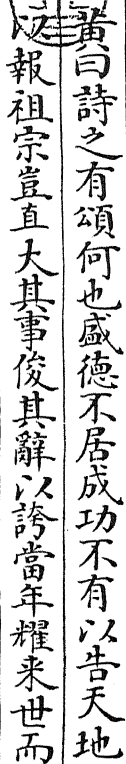 黃曰詩之有頌何也盛德不居成功不有以告天地
以報祖宗豈直大其事俊其辭以誇當年耀来世而